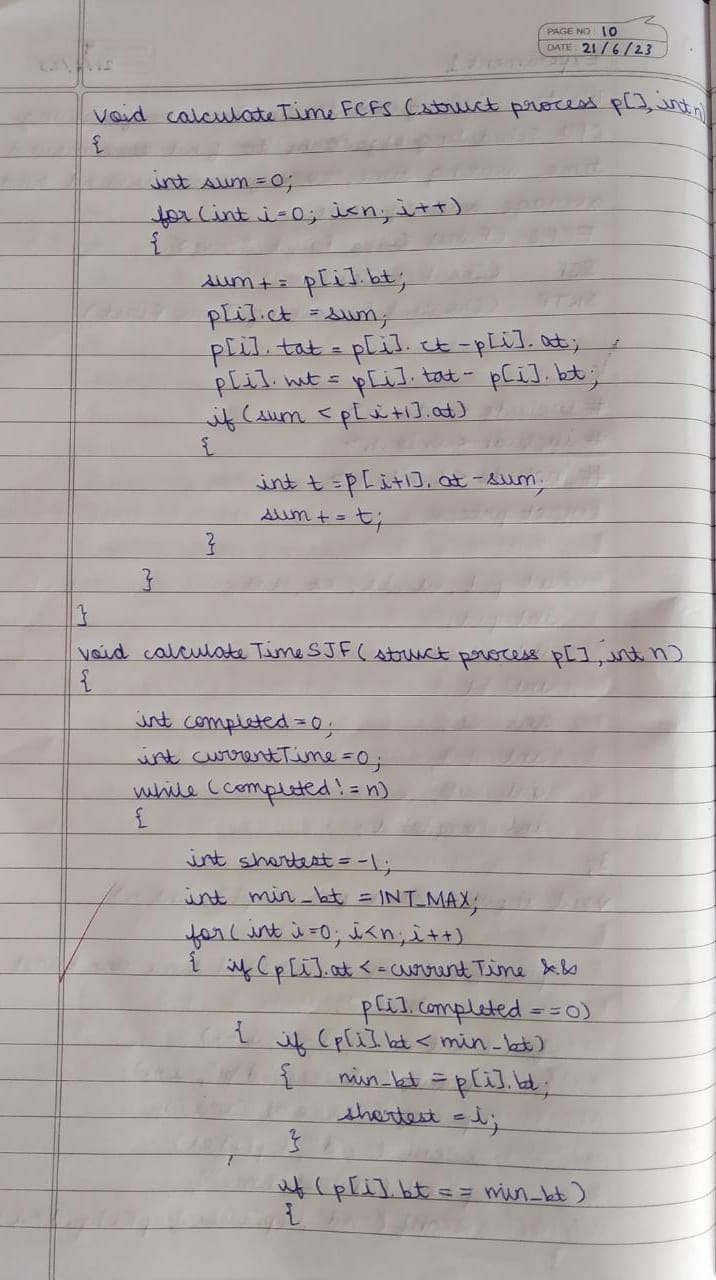 PAGE NO: 10
DATE: 21/6/23
void calculateTimeFCFS (struct process p[], int n)
{
int sum=0;
for (int i=0; i<n; i++)
{
sum+= p[i].bt;
p[i].ct =sum;
p[i].tat = p[i].ct -p[i].at;
p[i].wt = p[i].tat- p[i].bt;
if (sum < p[i+1].at)
{
int t =p[i+1].at -sum;
sum+= t;
}
}
}
void calculateTimeSJF( struct process p[], int n)
{
int completed=0;
int currentTime=0;
while (completed != n)
{
int shortest=-1;
int min_bt =INT_MAX;
for( int i=0; i<n; i++)
{ if (p[i].at <=currentTime &&
p[i].completed ==0)
{ if (p[i].bt < min_bt)
{ min_bt = p[i].bt;
shortest =i;
}
if (p[i].bt == min_bt)
{